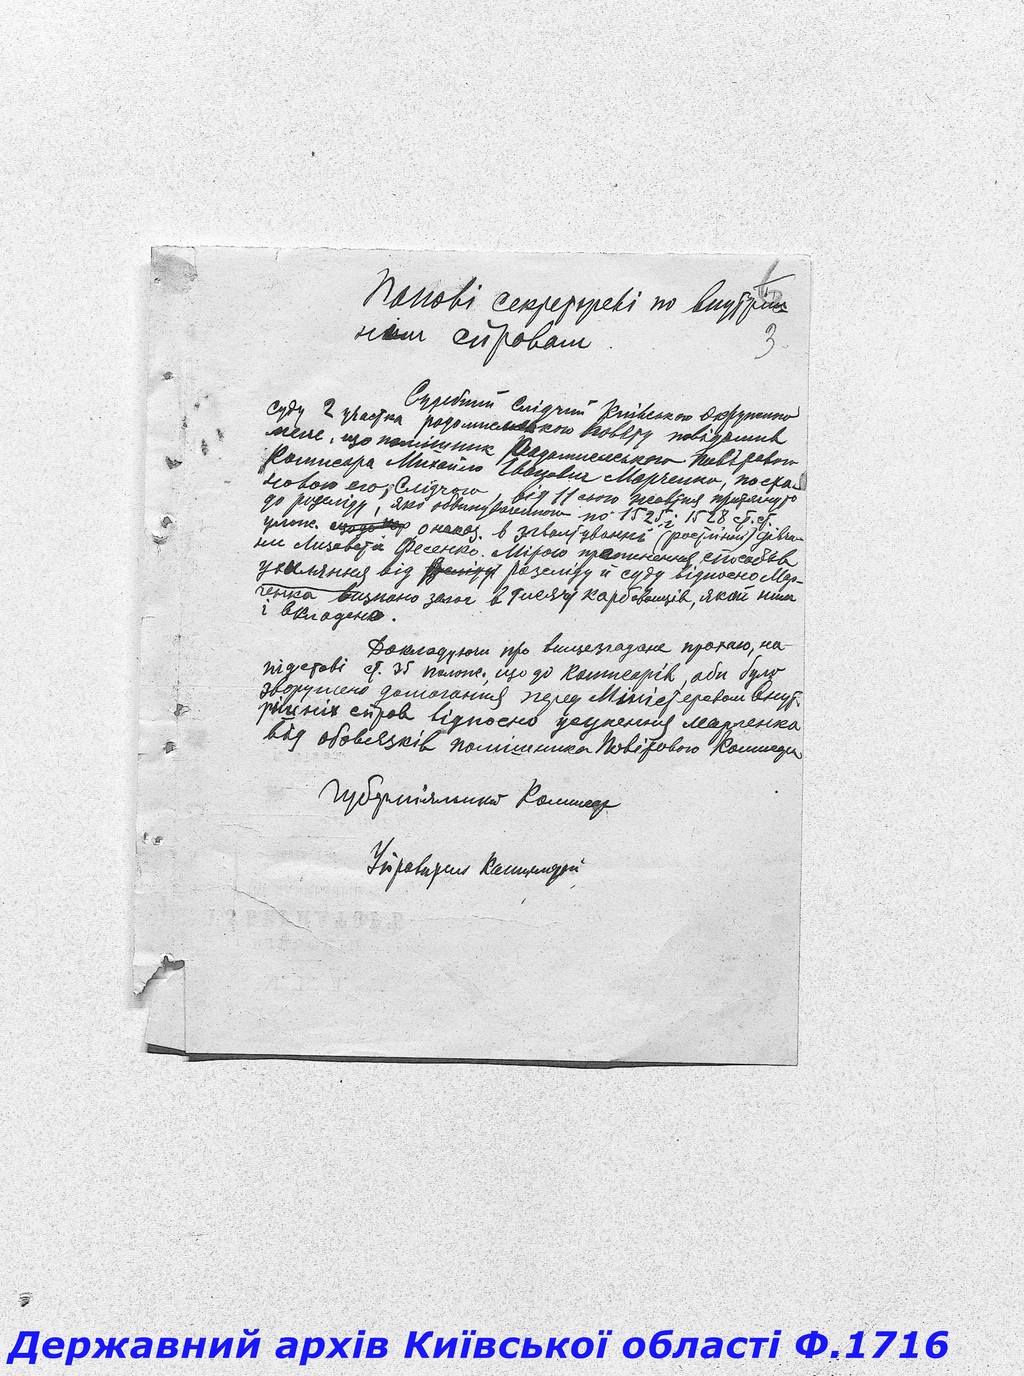 Панові секретореві по внутріш
нім справам
3
Судебний Слідчий Київського Окружного
суду 2 участка радомиського повіту повідомив
мене, що помішник Радомисльського Повітового
Комисара Михайло Іванович Марченко, поста
новою его, Слідчого, від 11 сього жовтня притягнуто
до розсліду, яко обвинуваченого по 1525 і 1528 ст.ст.
улож. о наказ. в згвалтуванні дівчи
ни Лизавети Фесенко. Мірою припинення способів
ухиляння від розсліду й суду відносно Мар
ченка визнано залог в тисячу карбованців, який ним
і вкладено.
Докладуючи про вищезгадане прохаю, на
підставі ст. 35 полож. що до комисарів, аби було
зворушено домогання перед Міністеровом Внут
рішніх справ відносно усунення Марченка
від обовязків помішника Повітового Комисара
Губерніяльний Комисар
Управитель Канцелярії
Державний архів Київської області Ф.1716